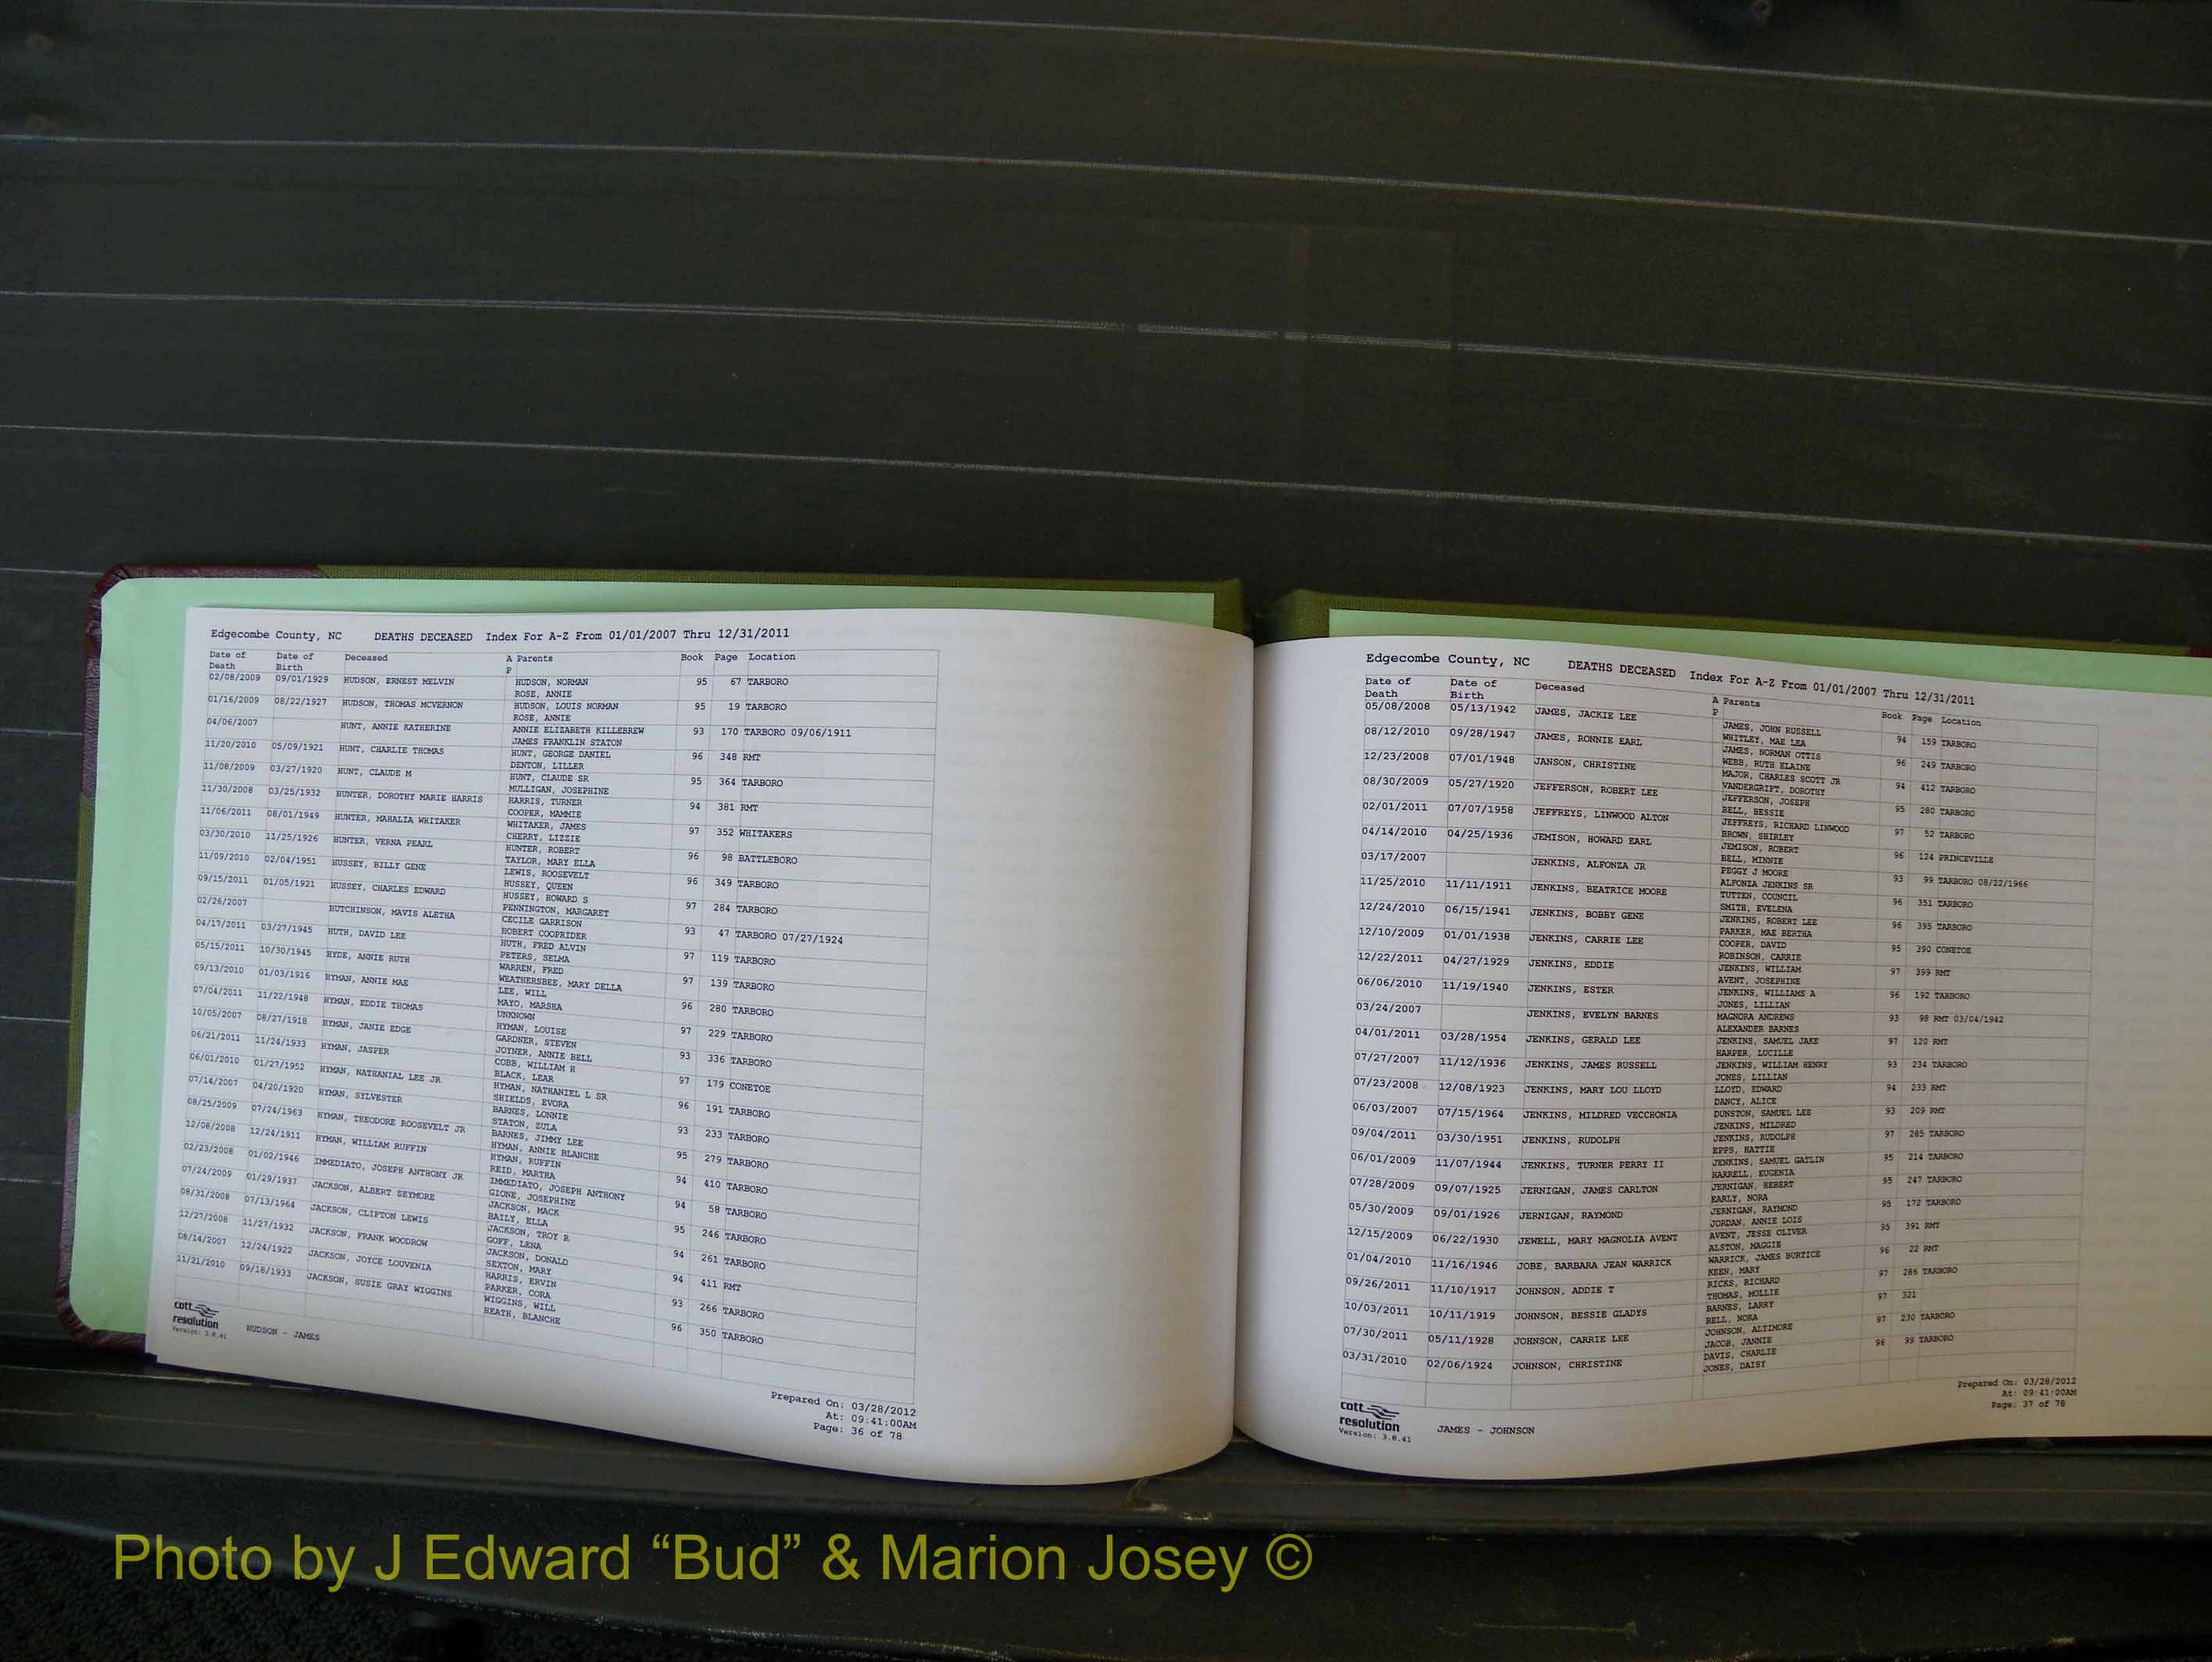 Edgecombe County, NC DEATHS DECEASED Index For A-Z From 01/01/2007 Thru 12/31/2011
Date of Date of Deceased A Parents Book Page Location
Death Birth P
02/08/2009 09/01/1929 HUDSON, ERNEST MELVIN HUDSON, NORMAN 95 67 TARBORO
ROSE, ANNIE
01/16/2009 08/22/1927 HUDSON, THOMAS MCVERNON HUDSON, LOUIS NORMAN 95 19 TARBORO
ROSE, ANNIE
04/06/2007 HUNT, ANNIE KATHERINE ANNIE ELIZABETH KILLEBREW 93 170 TARBORO 09/06/1911
JAMES FRANKLIN STATON
11/20/2010 05/09/1921 HUNT, CHARLIE THOMAS HUNT, GEORGE DANIEL 96 348 RMT
DENTON, LILLER
11/08/2009 03/27/1920 HUNT, CLAUDE M HUNT, CLAUDE SR 95 364 TARBORO
MULLIGAN, JOSEPHINE
11/30/2008 03/25/1932 HUNTER, DOROTHY MARIE HARRIS HARRIS, TURNER 94 381 RMT
COOPER, MAMMIE
11/06/2011 08/01/1949 HUNTER, MAHALIA WHITAKER WHITAKER, JAMES 97 352 WHITAKERS
CHERRY, LIZZIE
03/30/2010 11/25/1926 HUNTER, VERNA PEARL HUNTER, ROBERT 96 98 BATTLEBORO
TAYLOR, MARY ELLA
11/09/2010 02/04/1951 HUSSEY, BILLY GENE LEWIS, ROOSEVELT 96 349 TARBORO
HUSSEY, QUEEN
09/15/2011 01/05/1921 HUSSEY, CHARLES EDWARD HUSSEY, HOWARD S 97 284 TARBORO
PENNINGTON, MARGARET
02/26/2007 HUTCHINSON, MAVIS ALETHA CECILE GARRISON 93 47 TARBORO 07/27/1924
ROBERT COOPRIDER
04/17/2011 03/27/1945 HUTH, DAVID LEE HUTH, FRED ALVIN 97 119 TARBORO
PETERS, SELMA
05/15/2011 10/30/1945 HYDE, ANNIE RUTH WARREN, FRED 97 139 TARBORO
WEATHERSBEE, MARY DELLA
09/13/2010 01/03/1916 HYMAN, ANNIE MAE LEE, WILL 96 280 TARBORO
MAYO, MARSHA
07/04/2011 11/22/1948 HYMAN, EDDIE THOMAS UNKNOWN 97 229 TARBORO
HYMAN, LOUISE
10/05/2007 08/27/1918 HYMAN, JANIE EDGE GARDNER, STEVEN 93 336 TARBORO
JOYNER, ANNIE BELL
06/21/2011 11/24/1933 HYMAN, JASPER COBB, WILLIAM H 97 179 CONETOE
BLACK, LEAR
06/01/2010 01/27/1952 HYMAN, NATHANIAL LEE JR HYMAN, NATHANIEL L SR 96 191 TARBORO
SHIELDS, EVORA
07/14/2007 04/20/1920 HYMAN, SYLVESTER BARNES, LONNIE 93 233 TARBORO
STATON, ZULA
08/25/2009 07/24/1963 HYMAN, THEODORE ROOSEVELT JR BARNES, JIMMY LEE 95 279 TARBORO
HYMAN, ANNIE BLANCHE
12/08/2008 12/24/1911 HYMAN, WILLIAM RUFFIN HYMAN, RUFFIN 94 410 TARBORO
REID, MARTHA
02/23/2008 01/02/1946 IMMEDIATO, JOSEPH ANTHONY JR IMMEDIATO, JOSEPH ANTHONY 94 58 TARBORO
GIONE, JOSEPHINE
07/24/2009 01/29/1937 JACKSON, ALBERT SEYMORE JACKSON, MACK 95 246 TARBORO
BAILY, ELLA
08/31/2008 07/13/1964 JACKSON, CLIFTON LEWIS JACKSON, TROY R 94 261 TARBORO
GOFF, LENA
12/27/2008 11/27/1932 JACKSON, FRANK WOODROW JACKSON, DONALD 94 411 RMT
SEXTON, MARY
08/14/2007 12/24/1922 JACKSON, JOYCE LOUVENIA HARRIS, ERVIN 93 266 TARBORO
PARKER, CORA
11/21/2010 09/18/1933 JACKSON, SUSIE GRAY WIGGINS WIGGINS, WILL 96 350 TARBORO
HEATH, BLANCHE
cott
resolution
Version: 3.8.41
HUDSON - JAMES
Prepared On: 03/28/2012
At: 09:41:00AM
Page: 36 of 78
Edgecombe County, NC DEATHS DECEASED Index For A-Z From 01/01/2007 Thru 12/31/2011
Date of Date of Deceased A Parents Book Page Location
Death Birth P
05/08/2008 05/13/1942 JAMES, JACKIE LEE JAMES, JOHN RUSSELL 94 159 TARBORO
WHITLEY, MAE LEA
08/12/2010 09/28/1947 JAMES, RONNIE EARL JAMES, NORMAN OTTIS 96 249 TARBORO
WEBB, RUTH ELAINE
12/23/2008 07/01/1948 JANSON, CHRISTINE MAJOR, CHARLES SCOTT JR 94 412 TARBORO
VANDERGRIFT, DOROTHY
08/30/2009 05/27/1920 JEFFERSON, ROBERT LEE JEFFERSON, JOSEPH 95 280 TARBORO
BELL, BESSIE
02/01/2011 07/07/1958 JEFFREYS, LINWOOD ALTON JEFFREYS, RICHARD LINWOOD 97 52 TARBORO
BROWN, SHIRLEY
04/14/2010 04/25/1936 JEMISON, HOWARD EARL JEMISON, ROBERT 96 124 PRINCEVILLE
BELL, MINNIE
03/17/2007 JENKINS, ALFONZA JR PEGGY J MOORE 93 99 TARBORO 08/22/1966
ALFONZA JENKINS SR
11/25/2010 11/11/1911 JENKINS, BEATRICE MOORE TUTTEN, COUNCIL 96 351 TARBORO
SMITH, EVELENA
12/24/2010 06/15/1941 JENKINS, BOBBY GENE JENKINS, ROBERT LEE 96 395 TARBORO
PARKER, MAE BERTHA
12/10/2009 01/01/1938 JENKINS, CARRIE LEE COOPER, DAVID 95 390 CONETOE
ROBINSON, CARRIE
12/22/2011 04/27/1929 JENKINS, EDDIE JENKINS, WILLIAM 97 399 RMT
AVENT, JOSEPHINE
06/06/2010 11/19/1940 JENKINS, ESTER JENKINS, WILLIAMS A 96 192 TARBORO
JONES, LILLIAN
03/24/2007 JENKINS, EVELYN BARNES MAGNORA ANDREWS 93 98 RMT 03/04/1942
ALEXANDER BARNES
04/01/2011 03/28/1954 JENKINS, GERALD LEE JENKINS, SAMUEL JAKE 97 120 RMT
HARPER, LUCILLE
07/27/2007 11/12/1936 JENKINS, JAMES RUSSELL JENKINS, WILLIAM HENRY 93 234 TARBORO
JONES, LILLIAN
07/23/2008 12/08/1923 JENKINS, MARY LOU LLOYD LLOYD, EDWARD 94 233 RMT
DANCY, ALICE
06/03/2007 07/15/1964 JENKINS, MILDRED VECCHONIA DUNSTON, SAMUEL LEE 93 209 RMT
JENKINS, MILDRED
09/04/2011 03/30/1951 JENKINS, RUDOLPH JENKINS, RUDOLPH 97 285 TARBORO
EPPS, HATTIE
06/01/2009 11/07/1944 JENKINS, TURNER PERRY II JENKINS, SAMUEL GATLIN 95 214 TARBORO
HARRELL, EUGENIA
07/28/2009 09/07/1925 JERNIGAN, JAMES CARLTON JERNIGAN, HEBERT 95 247 TARBORO
EARLY, NORA
05/30/2009 09/01/1926 JERNIGAN, RAYMOND JERNIGAN, RAYMOND 95 172 TARBORO
JORDAN, ANNIE LOIS
12/15/2009 06/22/1930 JEWELL, MARY MAGNOLIA AVENT AVENT, JESSE OLIVER 95 391 RMT
ALSTON, MAGGIE
01/04/2010 11/16/1946 JOBE, BARBARA JEAN WARRICK WARRICK, JAMES BURTICE 96 22 RMT
KEEN, MARY
09/26/2011 11/10/1917 JOHNSON, ADDIE T RICKS, RICHARD 97 286 TARBORO
THOMAS, MOLLIE
10/03/2011 10/11/1919 JOHNSON, BESSIE GLADYS BARNES, LARRY 97 321
BELL, NORA
07/30/2011 05/11/1928 JOHNSON, CARRIE LEE JOHNSON, ALTIMORE 97 230 TARBORO
JACOB, JANNIE
03/31/2010 02/06/1924 JOHNSON, CHRISTINE DAVIS, CHARLIE 96 99 TARBORO
JONES, DAISY
cott
resolution
Version: 3.8.41
JAMES - JOHNSON
Prepared On: 03/28/2012
At: 09:41:00AM
Page: 37 of 78
Photo by J Edward “Bud” & Marion Josey ©